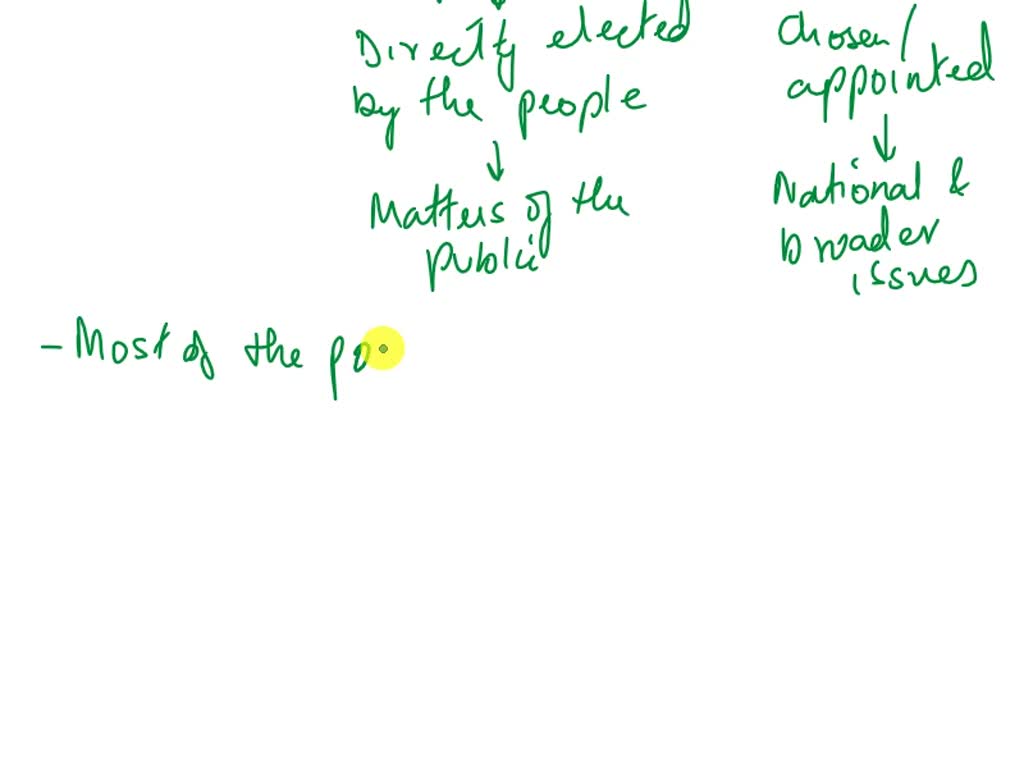 Directly elected
by the people
↓
Matters of the
public
Chosen/
appointed
↓
National &
broader
issues
- Most of the po